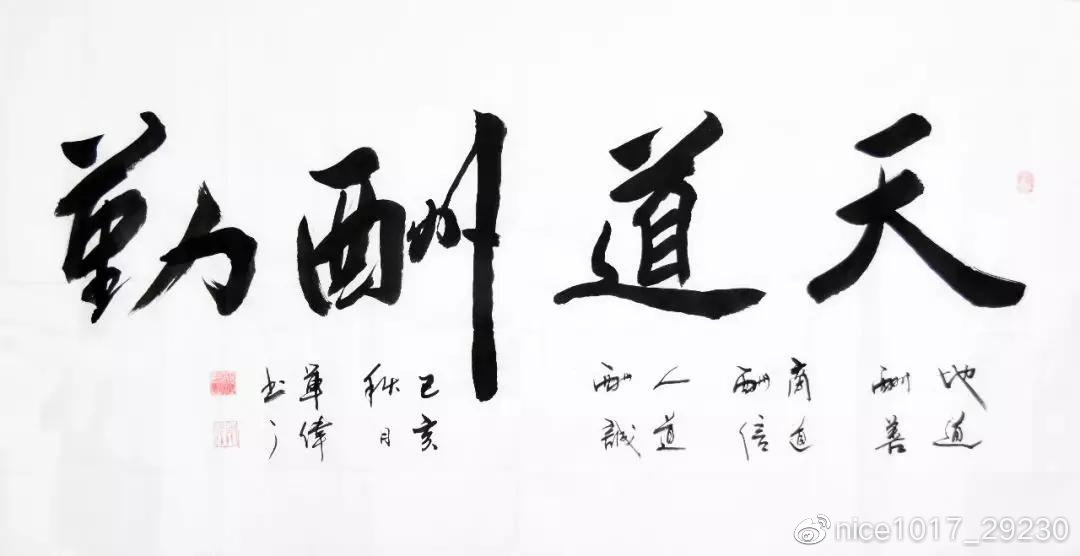 天道酬勤
地道
酬善
商道
酬信
人道
酬誠
己亥
秋月
軍偉
书
nice1017_29230